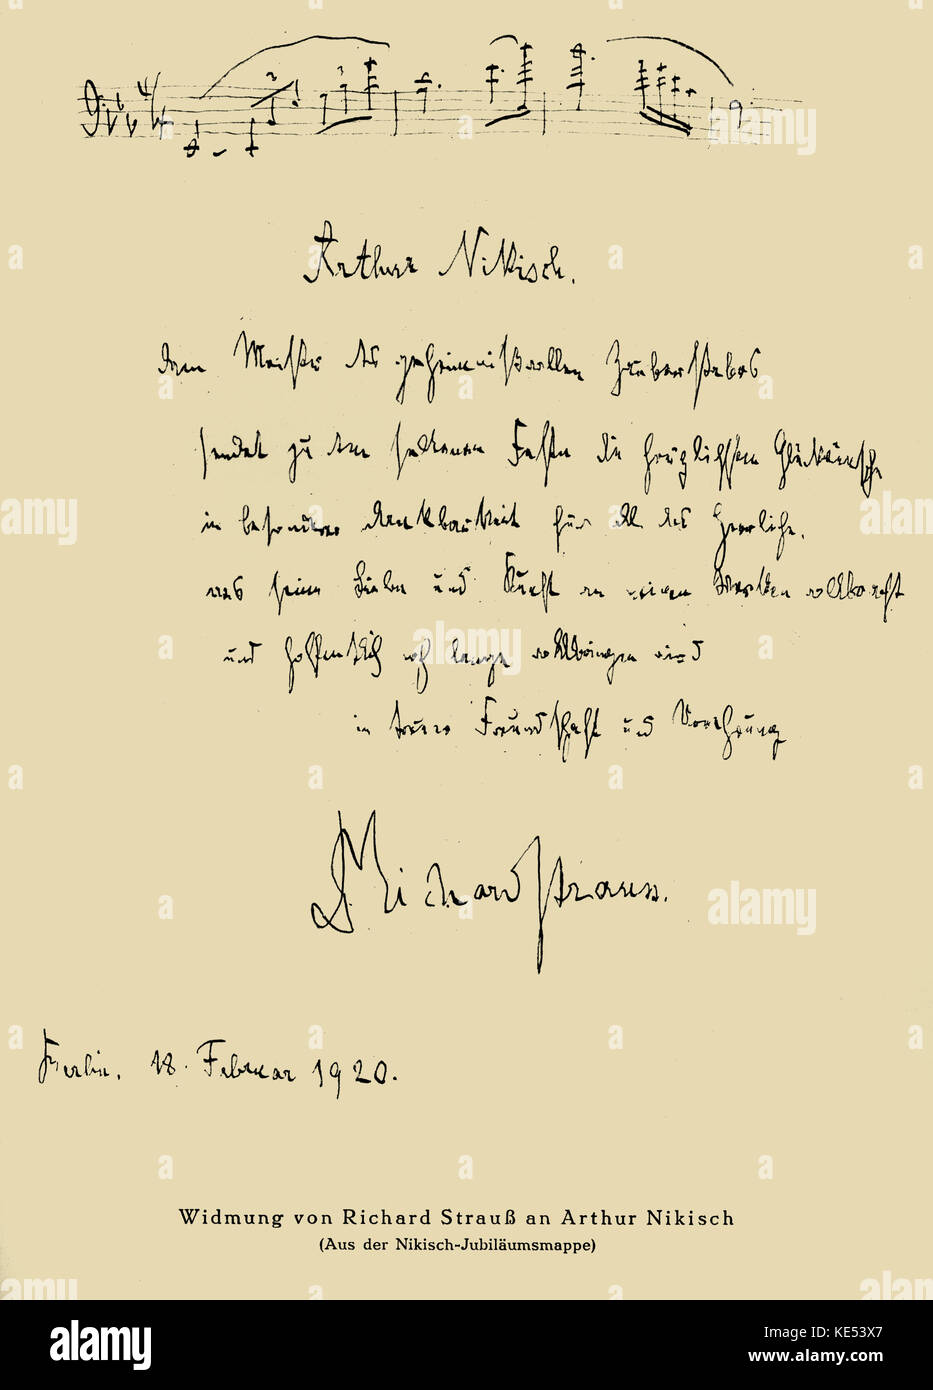 Arthur Nikisch.
dem Meister des geheimnisvollen Zauberstabes
sendet zu dem seltenen Feste die herzlichsten Glückwünsche
in besonderer Dankbarkeit für all das Herrliche,
was seine Liebe und Kunst an meinen Werken vollbracht
und hoffentlich noch lange vollbringen wird
in treuer Freundschaft und Verehrung
Richard Strauss.
Berlin, 18. Februar 1920.
Widmung von Richard Strauß an Arthur Nikisch
(Aus der Nikisch-Jubiläumsmappe)
alamy
Image ID: KE53X7
www.alamy.com